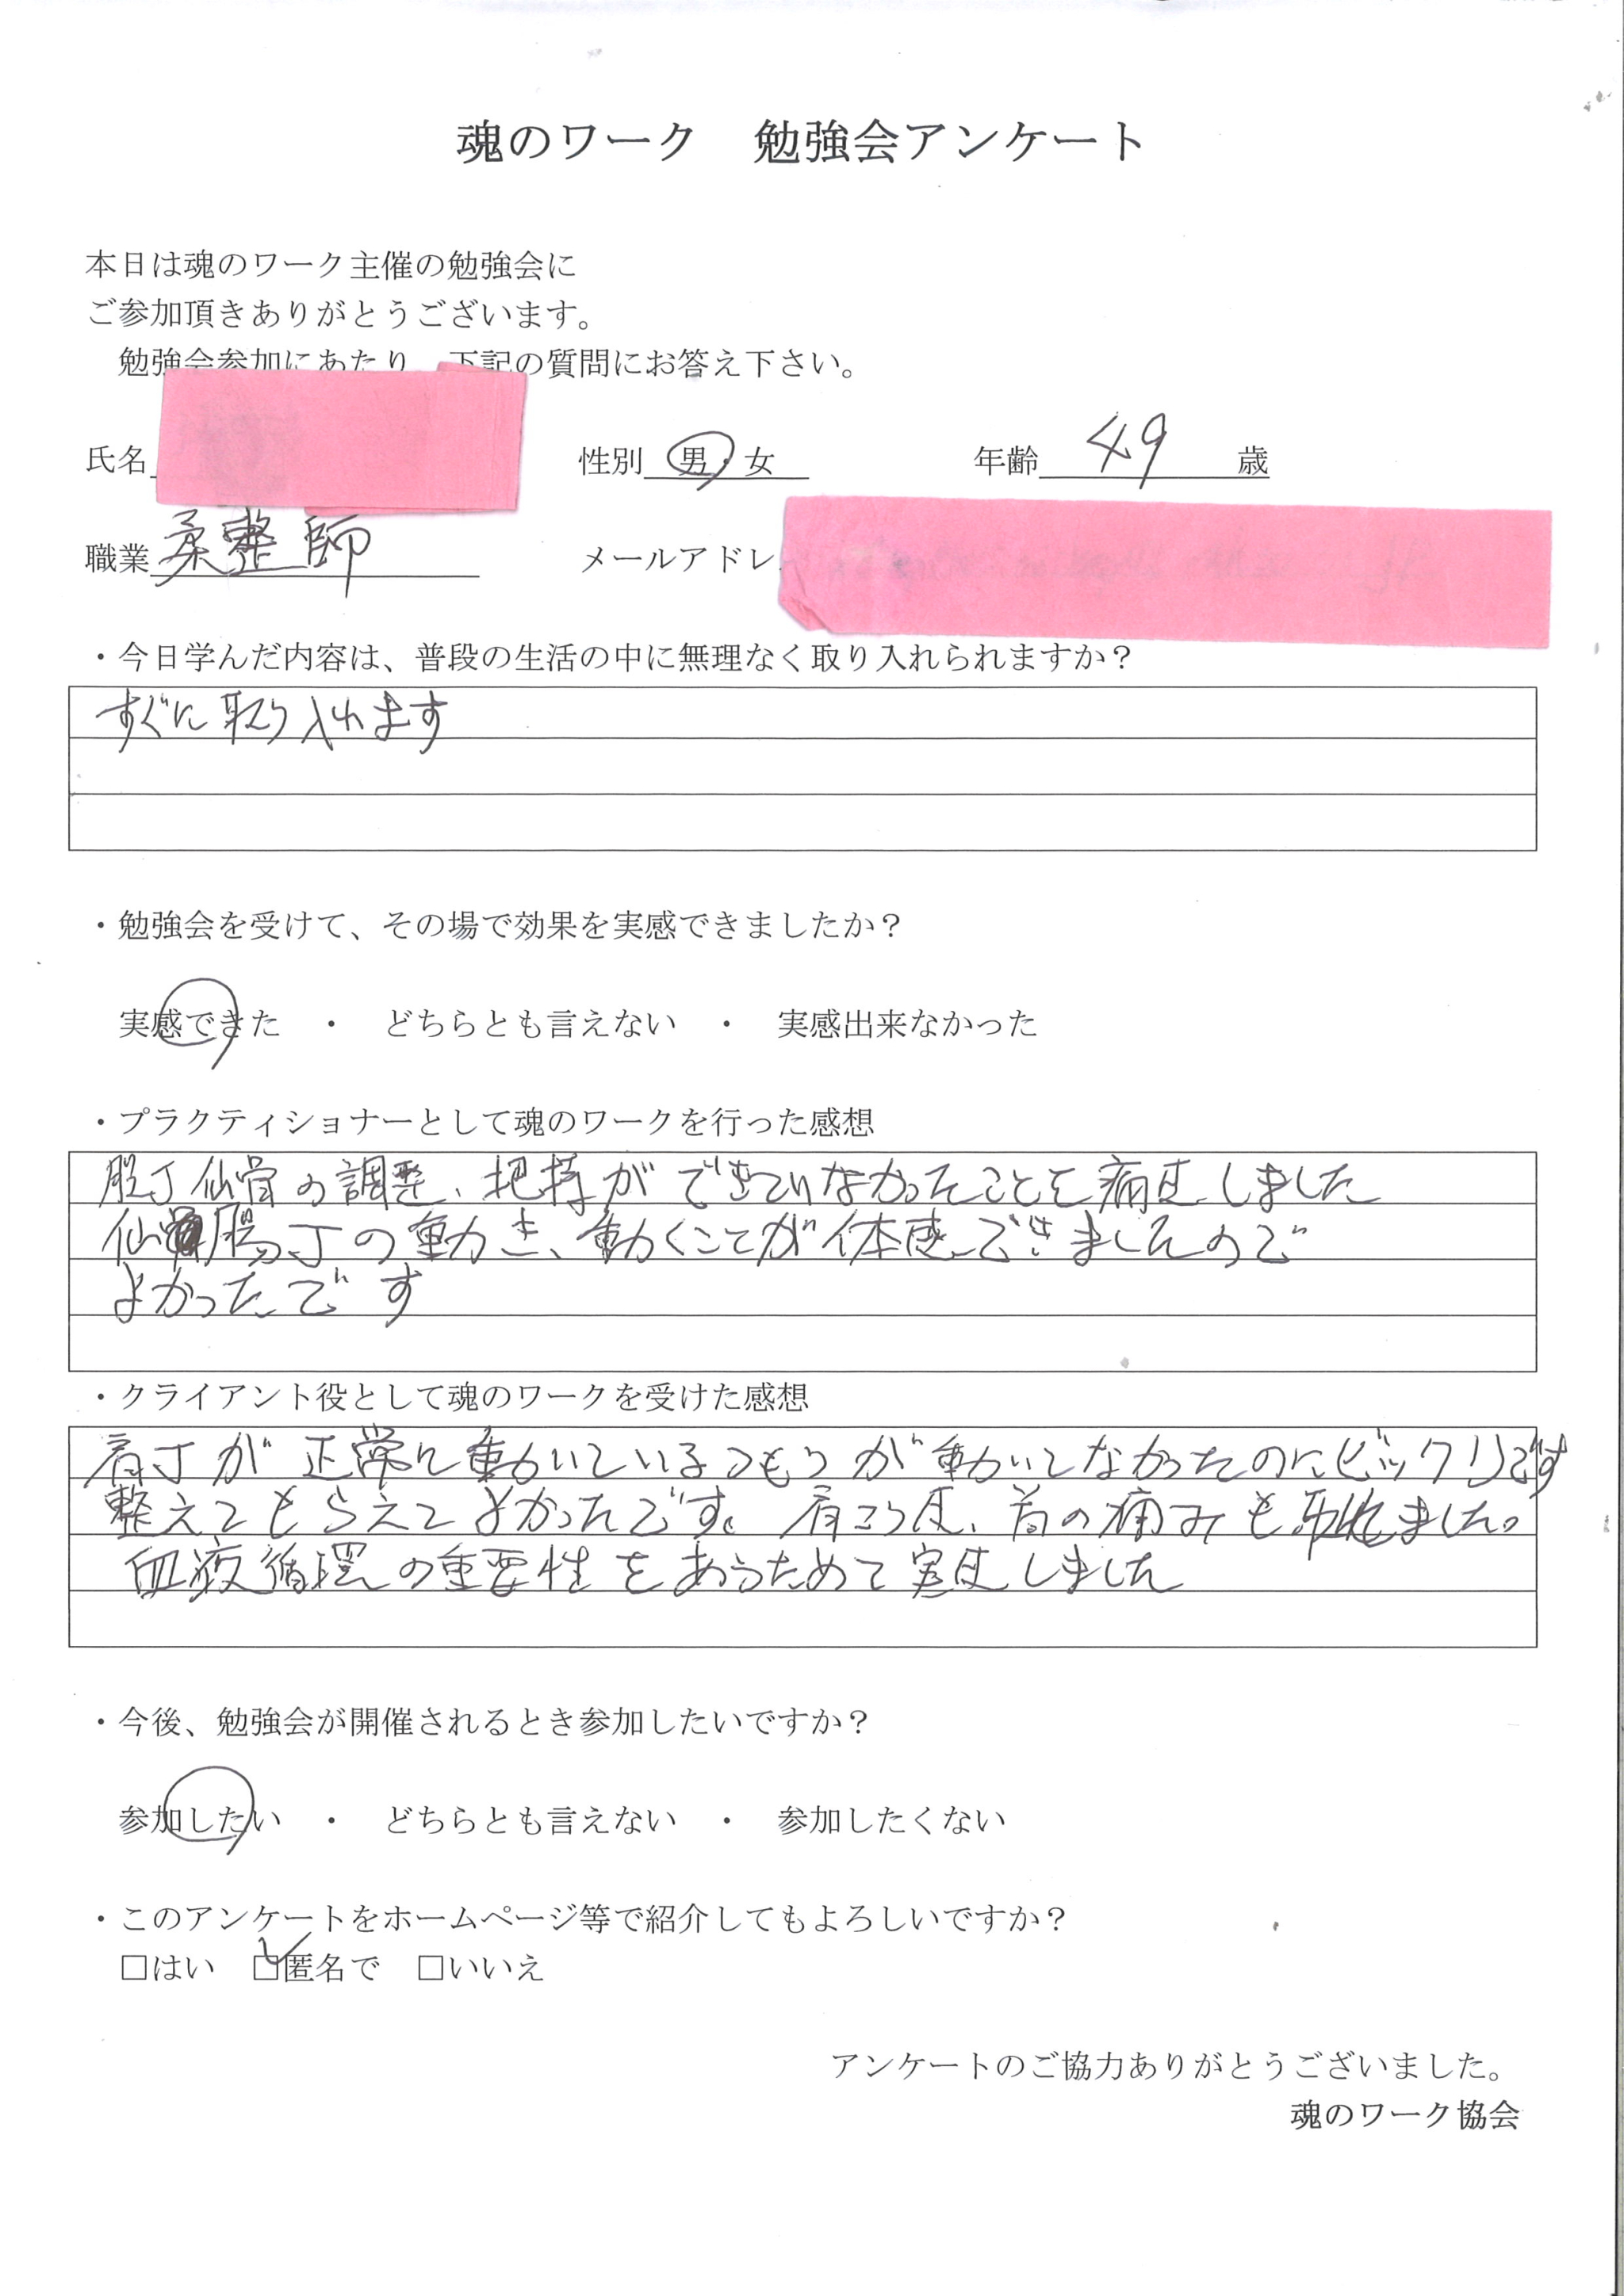 魂のワーク　勉強会アンケート
本日は魂のワーク主催の勉強会に
ご参加頂きありがとうございます。
勉強会参加にあたり、下記の質問にお答え下さい。
氏名 性別 男・女 年齢 49 歳
職業 柔整師 メールアドレ
・今日学んだ内容は、普段の生活の中に無理なく取り入れられますか？
すぐに取り入れます
・勉強会を受けて、その場で効果を実感できましたか？
実感できた　・　どちらとも言えない　・　実感出来なかった
・プラクティショナーとして魂のワークを行った感想
仙骨の調整、把持ができていなかったことを痛感しました
仙腸丁の動き、動くことが体感できましたので
よかったです
・クライアント役として魂のワークを受けた感想
肩丁が正常に動いているつもりが動いてなかったのにビックリです
整えてもらえてよかったです。肩こり感、首の痛みも取れました。
血液循環の重要性をあらためて実感しました
・今後、勉強会が開催されるとき参加したいですか？
参加したい　・　どちらとも言えない　・　参加したくない
・このアンケートをホームページ等で紹介してもよろしいですか？
□はい　□匿名で　□いいえ
アンケートのご協力ありがとうございました。
魂のワーク協会